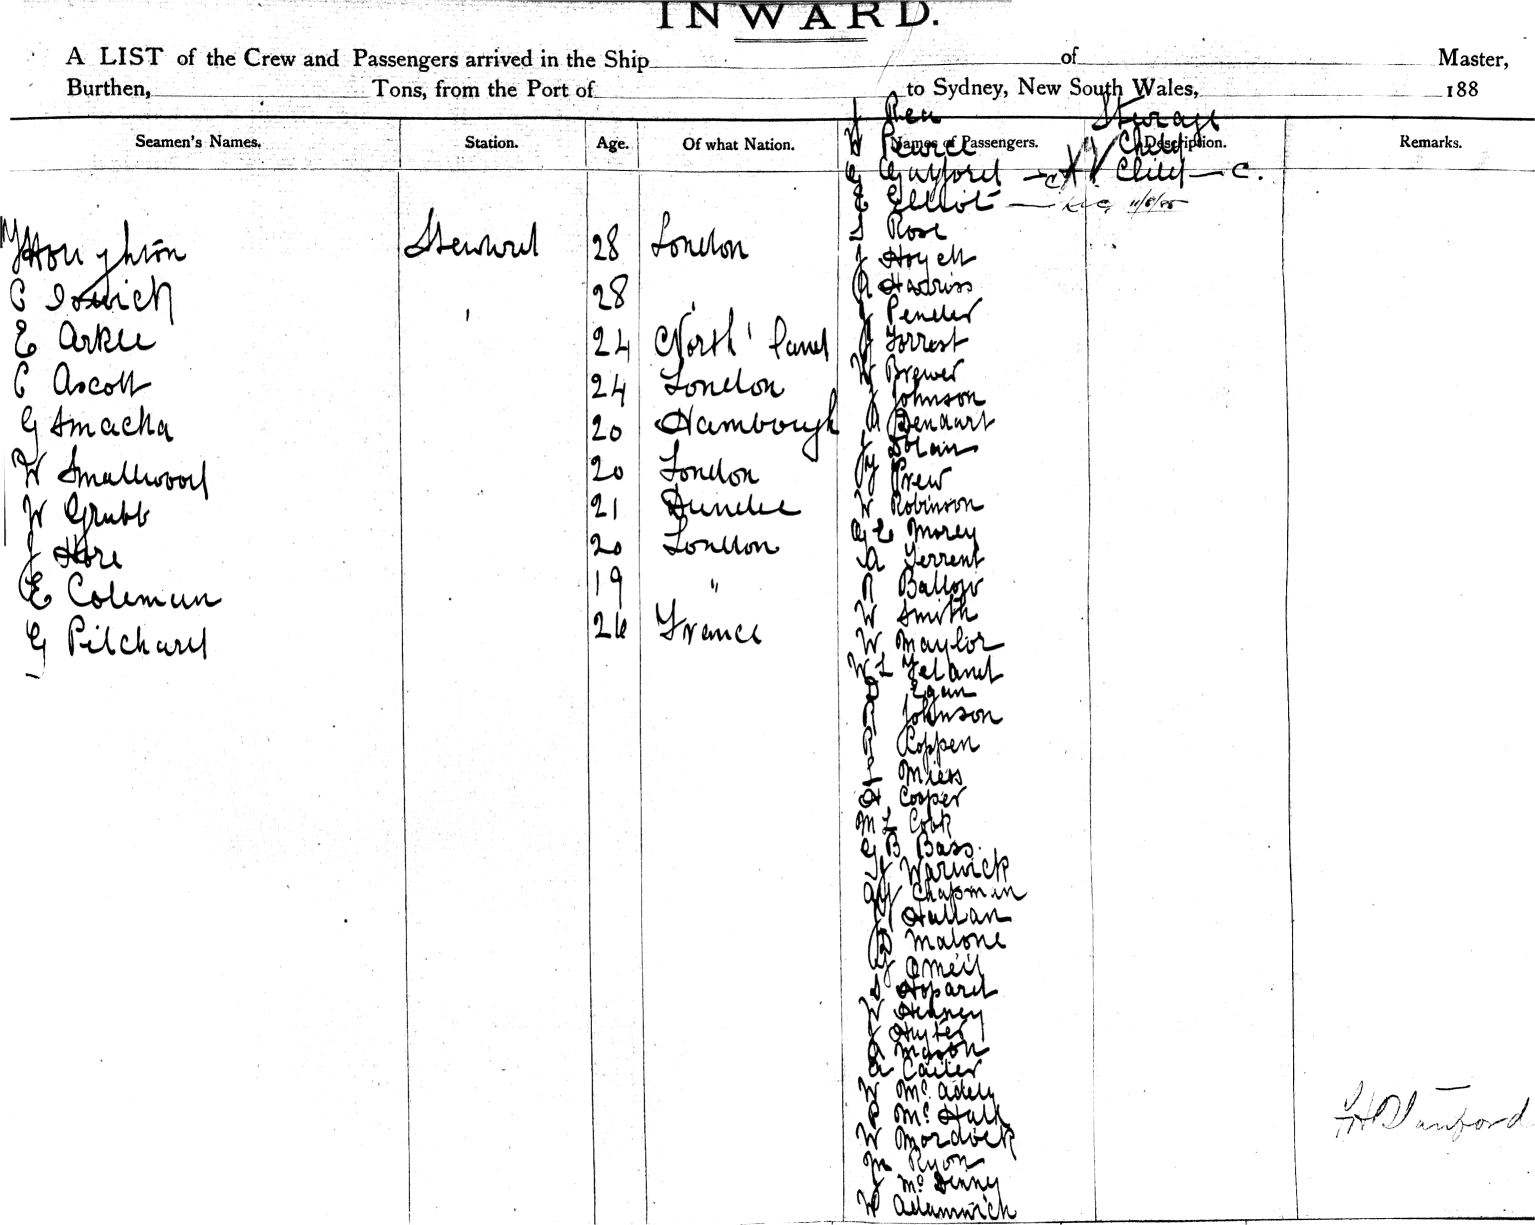 INWARD.
A LIST of the Crew and Passengers arrived in the Ship of Master,
Burthen, Tons, from the Port of to Sydney, New South Wales, 188
Seamen's Names. Station. Age. Of what Nation. Names of Passengers. Description. Remarks.
Houghton Steward 28 London
C 28
E Arkle 24 North
C Ascott 24 London
G Amacha 20 Hambourgh
W Smallwood 20 London
W Grubb 21 Dundee
J Hore 20 London
E Coleman 19 "
G Pilchard 26 France
J Rea
W Pearce Child
G Gayford — Child — C.
E Elliot — 11/8/85
S Rose
J Hoyett
A Harriss
J Pender
J Forrest
W Brewer
J Johnson
A
J Dolan
J Prew
W Robinson
G E Morey
A Terrent
R Ballow
W Smith
W Maylor
W L
Egan
Johnson
Coppen
Miers
Cooper
M L Cook
G B Bass.
J Warwick
Chapman
Hallan
Malone
J O'Neil
S
W Henney
J Hyter
G Mason
A
W Mc
R Mc Hall
W Mordock
Ryon
J Mc Dinny
W